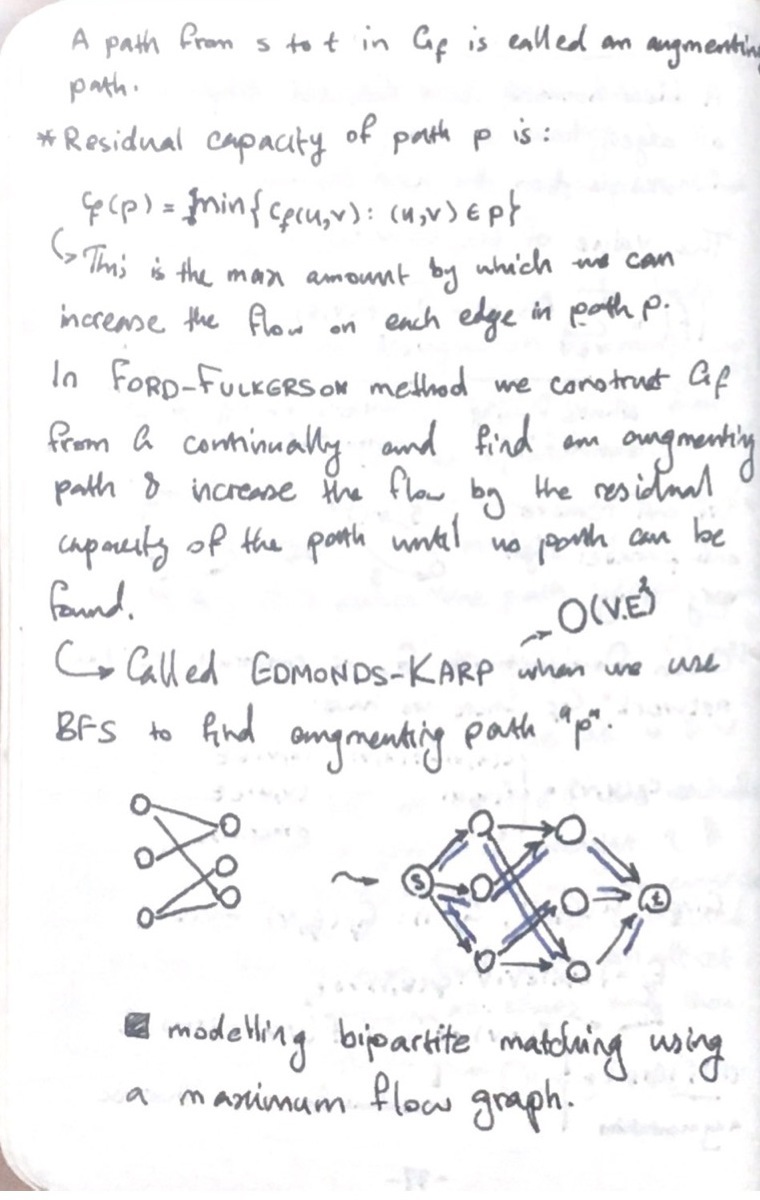 A path from s to t in Gf is called an augmenting
path.
* Residual capacity of path p is:
cf(p) = min{cf(u,v): (u,v) ∈ p}
↳ This is the max amount by which we can
increase the flow on each edge in path p.
In FORD-FULKERSON method we construct Gf
from G continually and find an augmenting
path & increase the flow by the residual
capacity of the path until no path can be
found.
→ O(V.E²)
↳ Called EDMONDS-KARP when we use
BFS to find augmenting path "p".
s t
modelling bipartite matching using
a maximum flow graph.